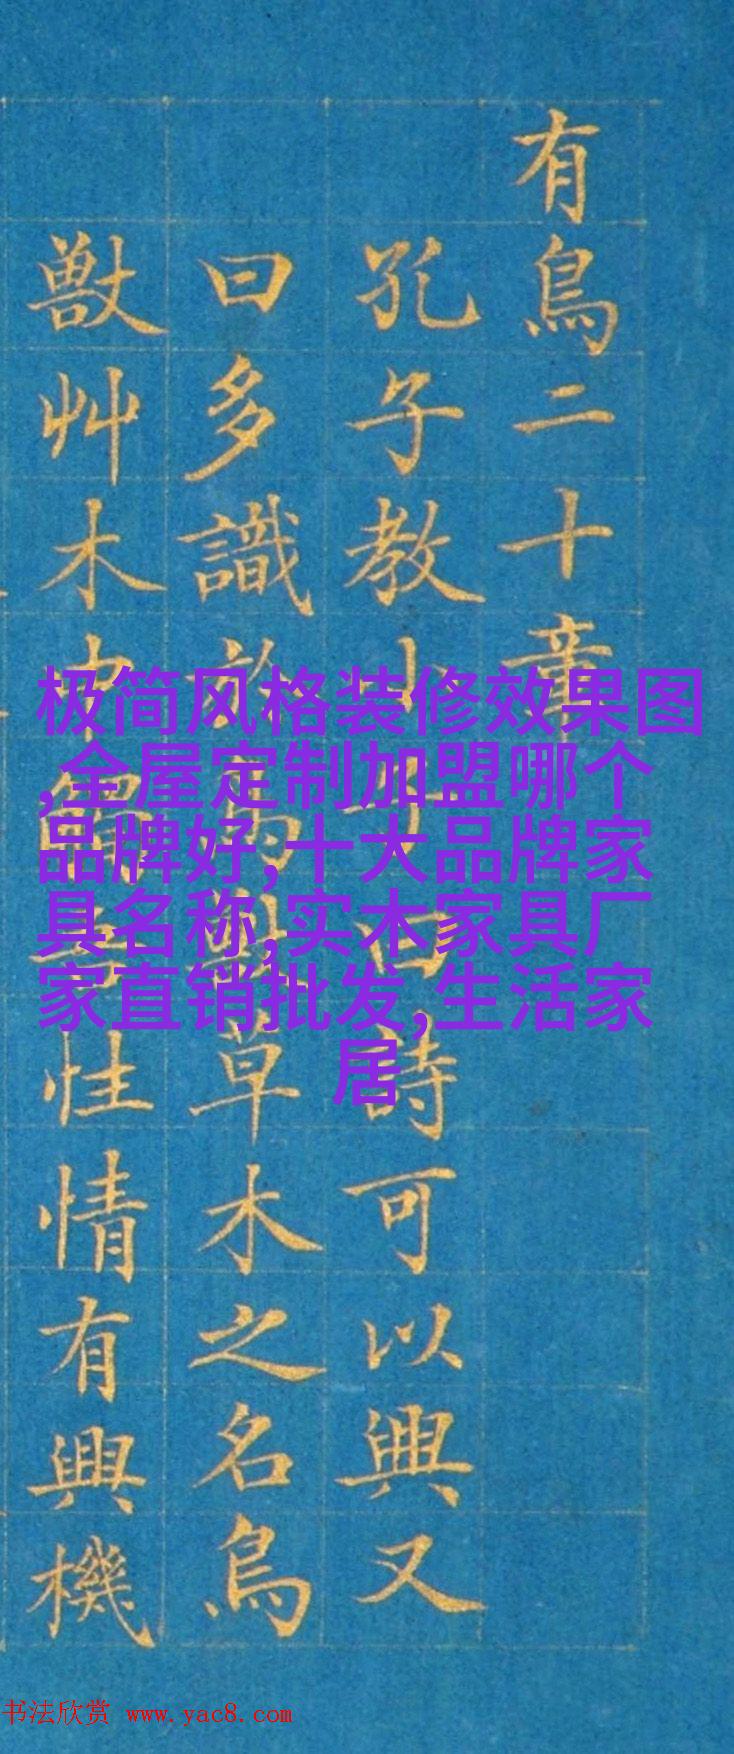 有鳥二十章
孔子教小子詩可以興又
曰多識於鳥獸草木之名鳥
獸艸木性情有興機
极简风格装修效果图
,全屋定制加盟哪个
品牌好,十大品牌家
具名称,实木家具厂
家直销批发,生活家
居
书法欣赏 www.yac8.com